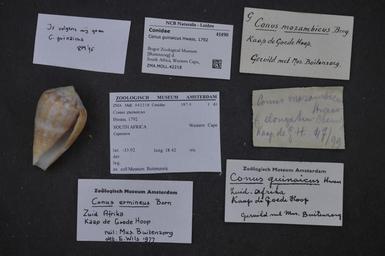 Is volgens mij geen
C. guinaicus
NCB Naturalis - Leiden
Conidae
Conus guinaicus Hwass, 1792
Bogor Zoological Museum
South Africa, Western Cape,
ZMA.MOLL.42218
G Conus mozambicus Brug
Kaap de Goede Hoop
Geruild met Mus. Buitenzorg.
ZOOLOGISCH MUSEUM AMSTERDAM
Conidae
Conus guinaicus
Hwass, 1792
SOUTH AFRICA Western Cape
Capetown
lat: -33.92 long: 18.42 alt:
dat:
leg:
ex. coll Museum Buitenzorg
Conus mozambicus
Kaap de G. H.
Zoölogisch Museum Amsterdam
Conus ermineus Born
Zuid Afrika
Kaap de Goede Hoop
ruil: Mus. Buitenzorg
det. E. Wils 1977
Zoölogisch Museum Amsterdam
Conus guinaicus Hwass
Zuid-Afrika
Kaap de Goede Hoop
Geruild met Mus. Buitenzorg